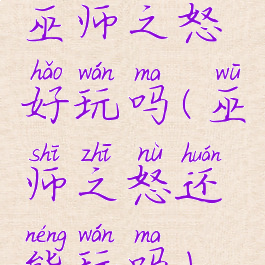 巫师之怒
hǎo wán ma wū
好玩吗(巫
shī zhī nù huán
师之怒还
néng wán ma
能玩吗)